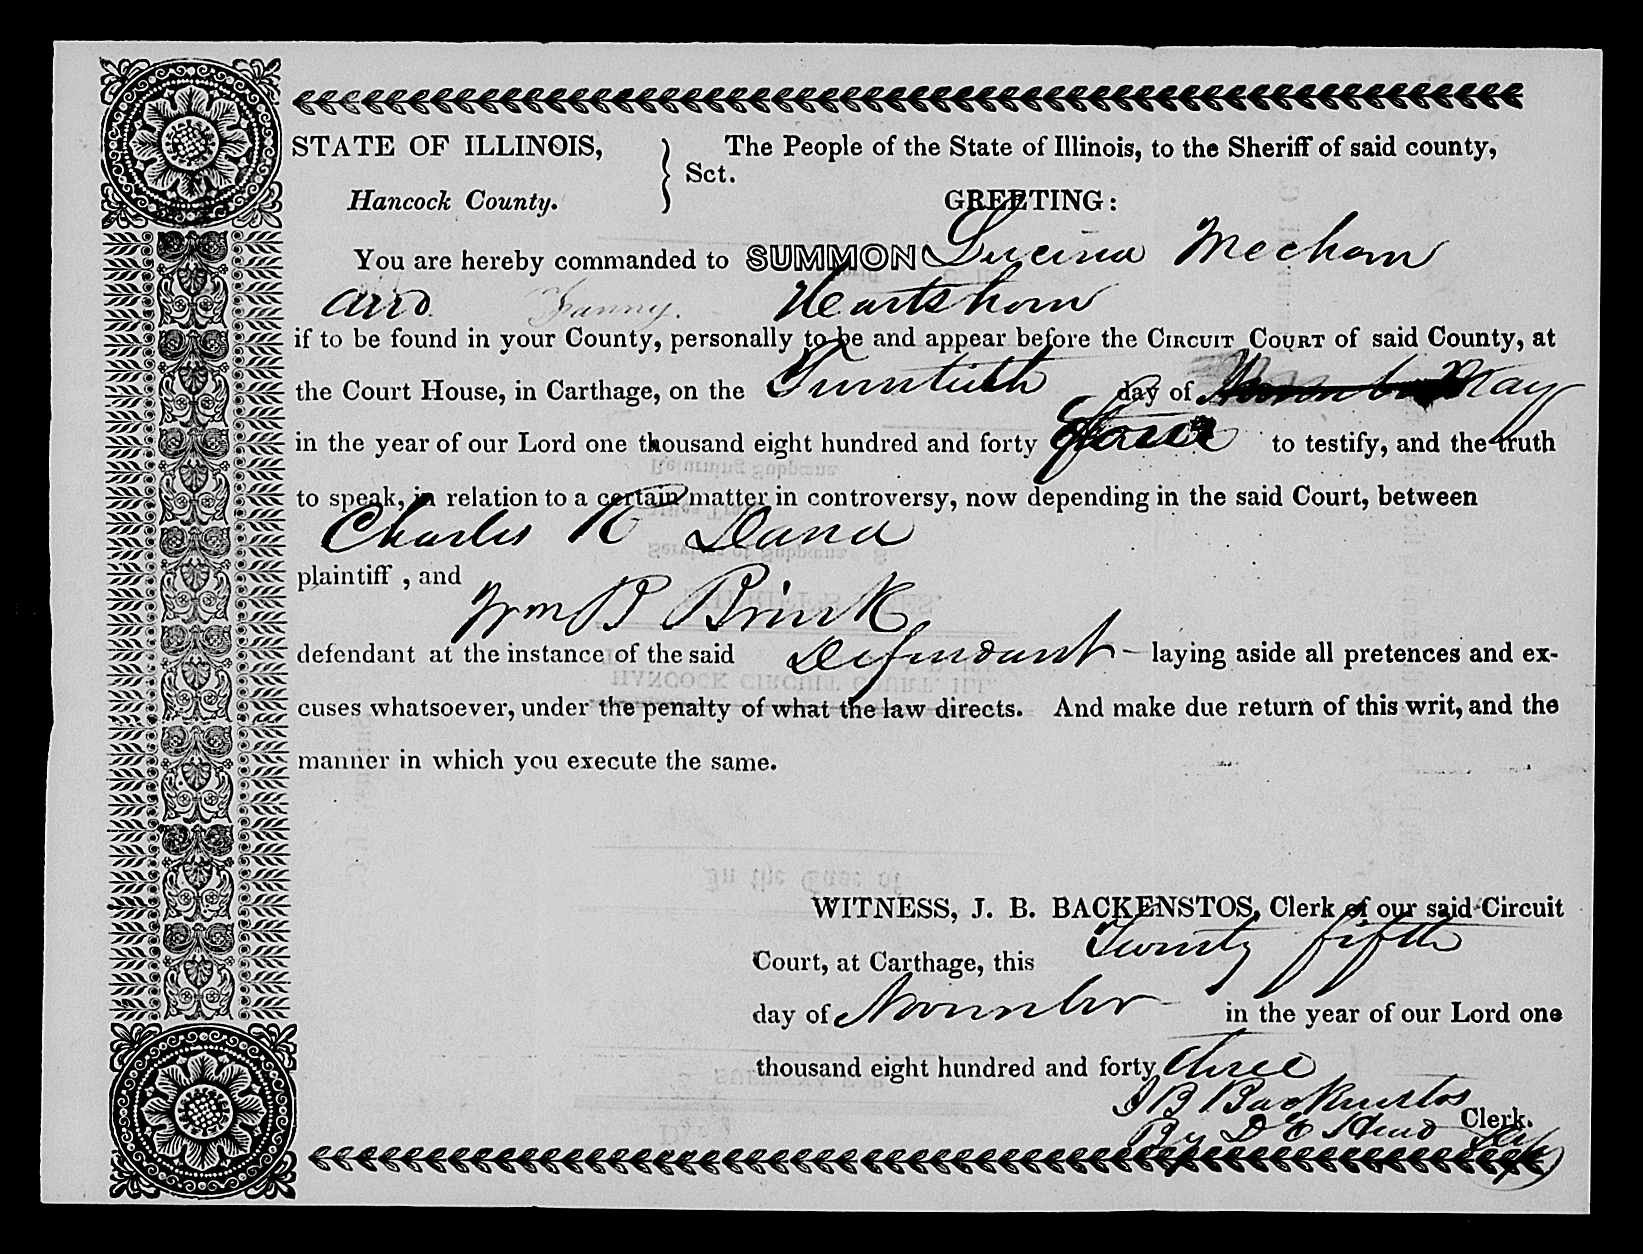 STATE OF ILLINOIS, } Sct. The People of the State of Illinois, to the Sheriff of said county,
Hancock County. GREETING:
You are hereby commanded to SUMMON Lucina Mecham
and Fanny. Heartshorn
if to be found in your County, personally to be and appear before the CIRCUIT COURT of said County, at
the Court House, in Carthage, on the Twentieth day of May
in the year of our Lord one thousand eight hundred and forty four to testify, and the truth
to speak, in relation to a certain matter in controversy, now depending in the said Court, between
Charles R Dana
plaintiff , and
Wm B Brink
defendant at the instance of the said Defendant – laying aside all pretences and ex-
cuses whatsoever, under the penalty of what the law directs. And make due return of this writ, and the
manner in which you execute the same.
WITNESS, J. B. BACKENSTOS, Clerk of our said Circuit
Court, at Carthage, this Twenty fifth
day of November in the year of our Lord one
thousand eight hundred and forty three
J B Backenstos
Clerk.
By D E Head Dep